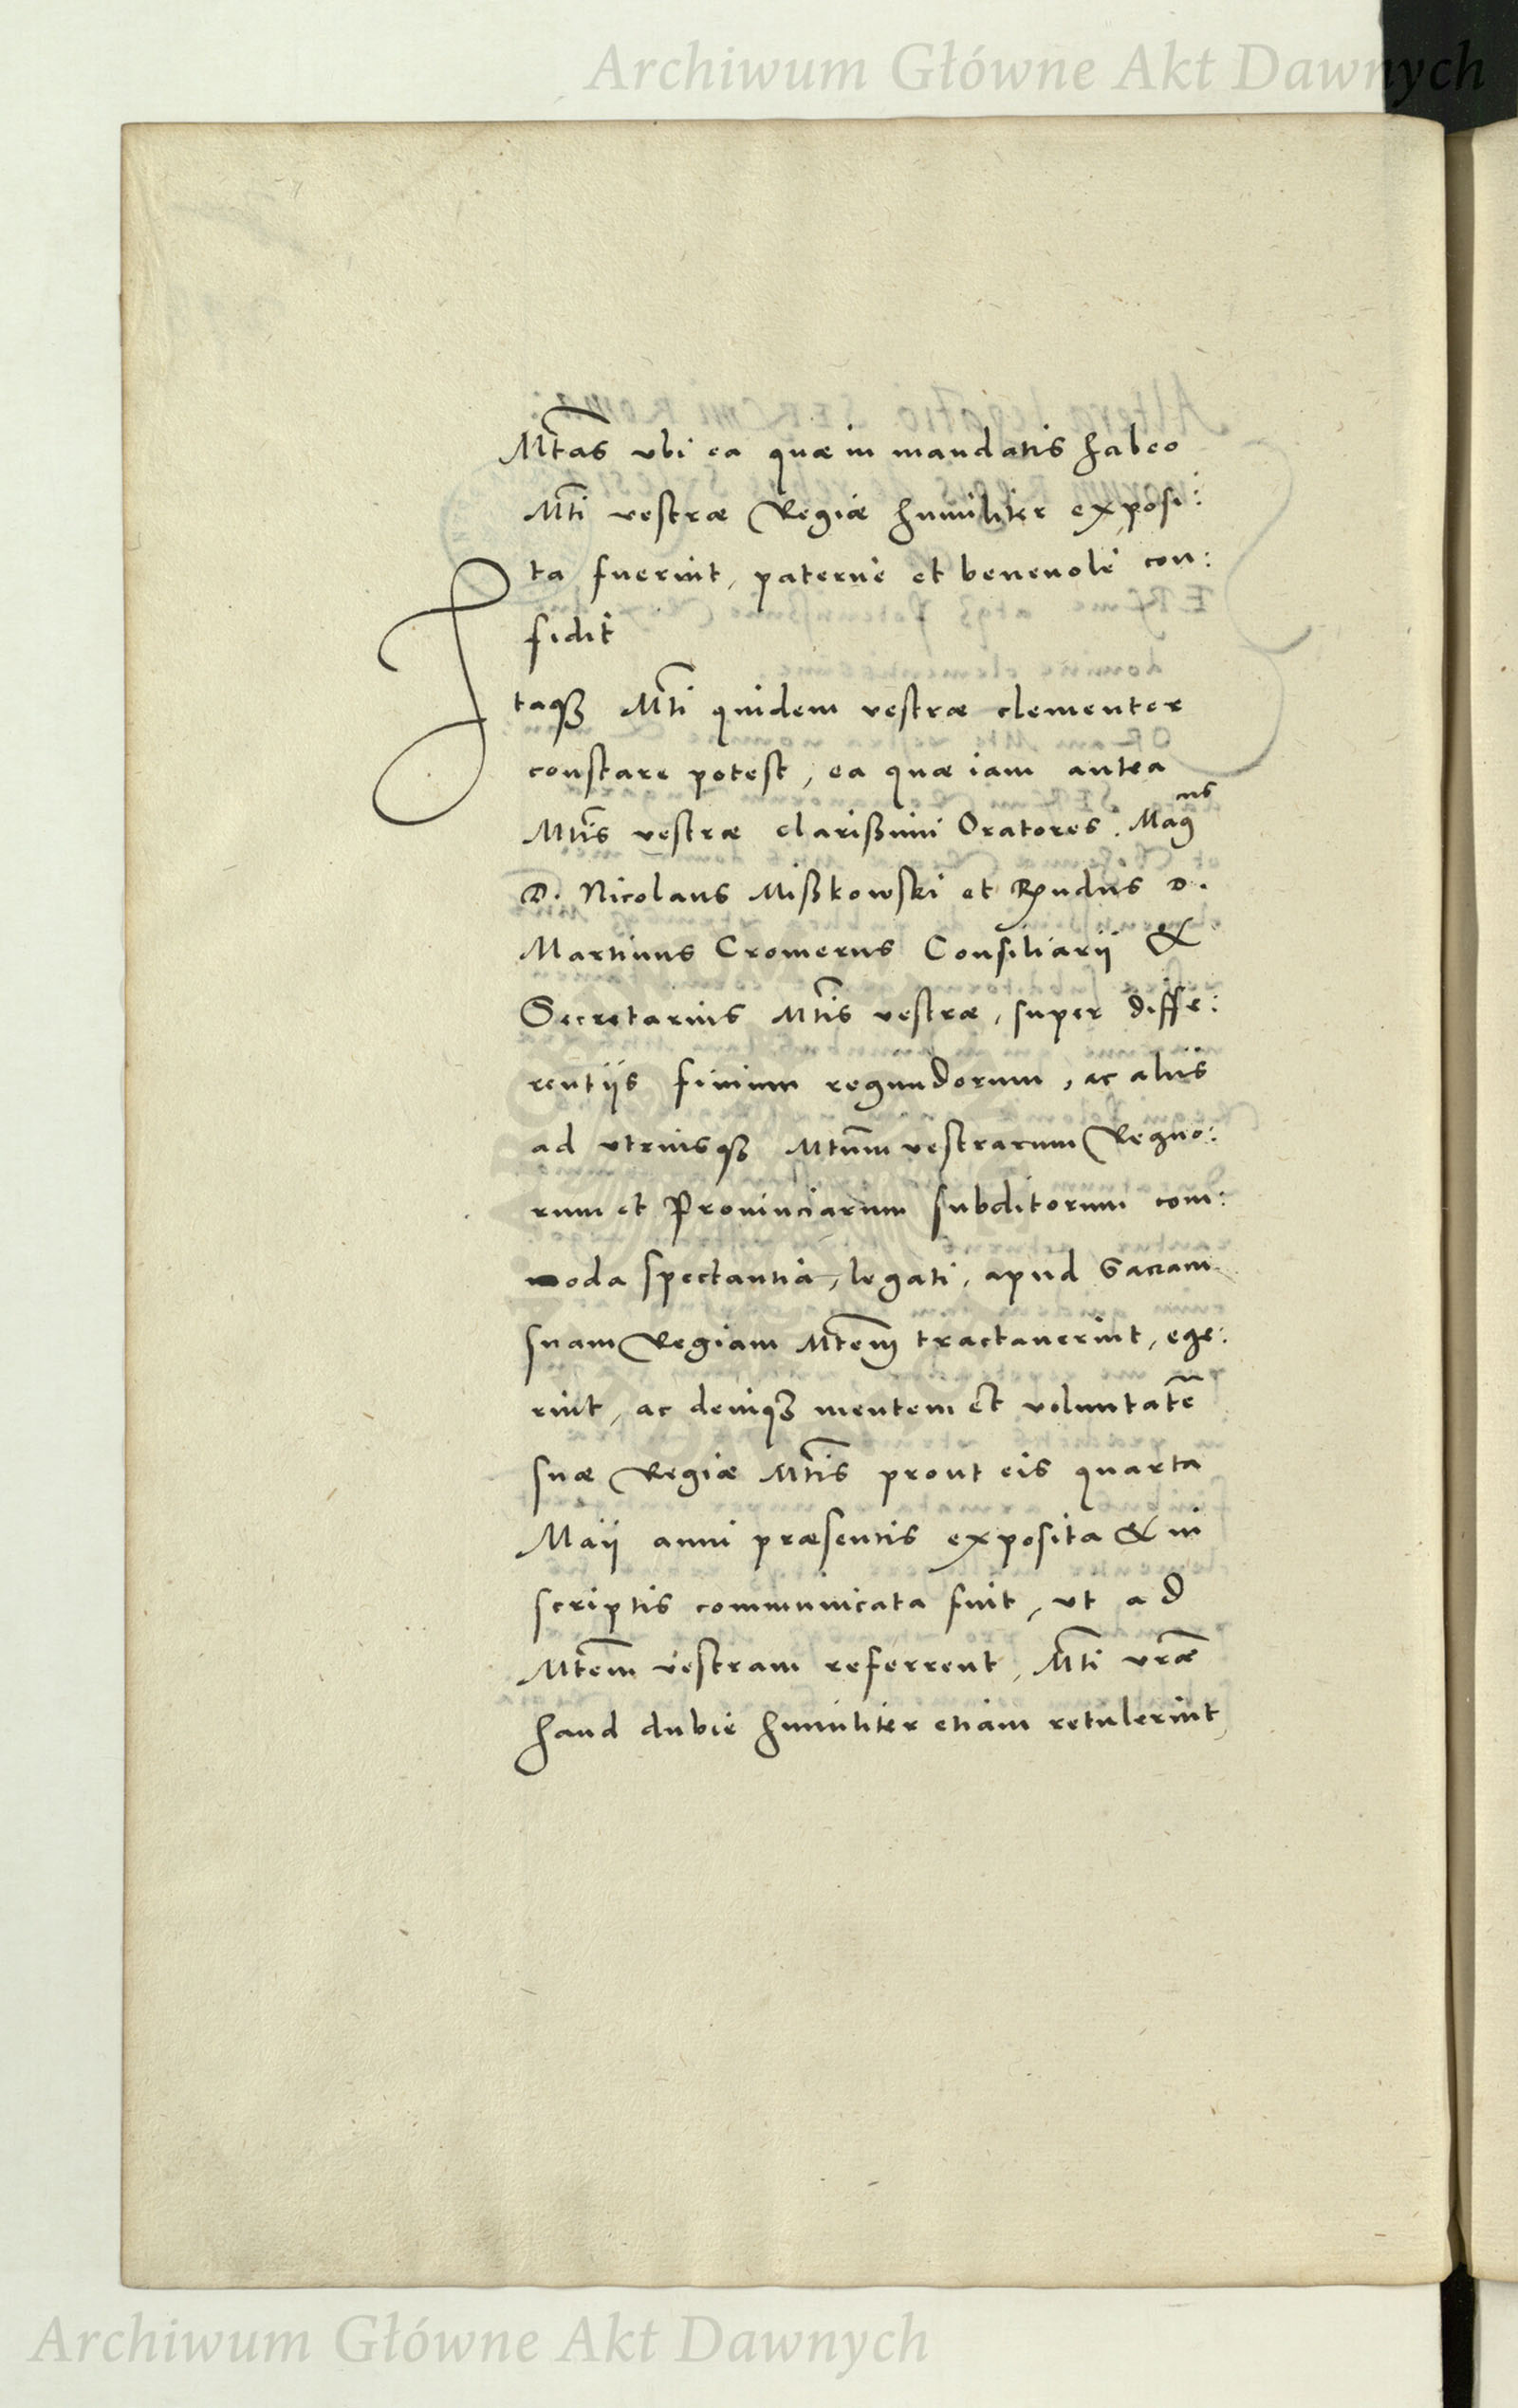 Archiwum Główne Akt Dawnych
Mtas vbi ea quæ in mandatis habeo
Mti vestræ Regiæ humiliter exposi:
ta fuerint, paterne et beneuole con:
fidit
Itaqȝ Mti quidem vestræ clementer
constare potest, ea quæ iam antea
Mtis vestræ clarißimi Oratores. Magcus
D. Nicolaus Mißkowski et Rndus D.
Martinus Cromerus Consiliarij &
Secretarius Mtis vestræ, super diffe:
rentijs finium regundorum, ac aliis
ad vtriusqȝ Mtum vestrarum Regno:
rum et Prouinciarum subditorum com:
moda spectantia, legati, apud Sacram
suam Regiam Mtem tractauerint, ege:
rint, ac deniqȝ mentem et voluntatē
suæ Regiæ Mtis prout eis quarta
Maij anni præsentis exposita & in
scriptis communicata fuit, vt ad
Mtem vestram referrent, Mti vræ
haud dubie humiliter etiam retulerint,
Archiwum Główne Akt Dawnych